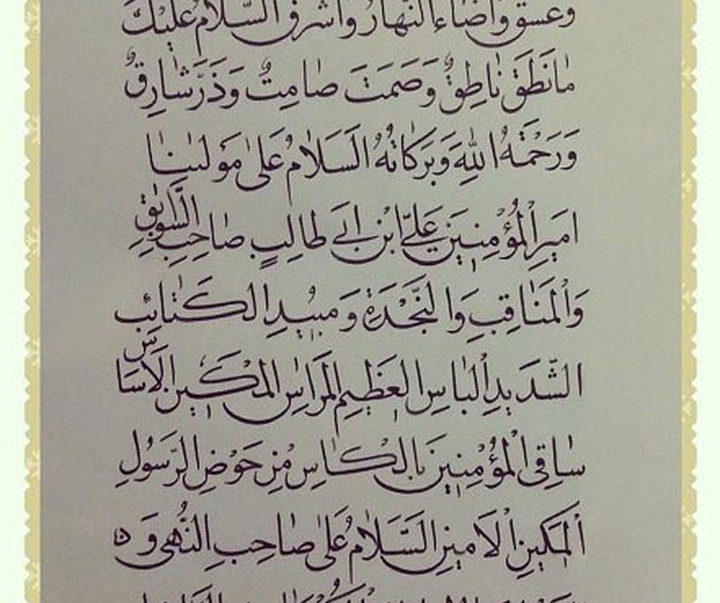 وَغَسَقَ وَاَضَاءَ النَّهَارُ وَاَشْرَقَ اَلسَّلَامُ عَلَيْكَ
مَانَطَقَ نَاطِقٌ وَصَمَتَ صَامِتٌ وَذَرَّ شَارِقٌ
وَرَحْمَةُ اللّٰهِ وَبَرَكَاتُهُ اَلسَّلَامُ عَلٰى مَوْلٰينَا
اَمِيرِ الْمُؤْمِنِينَ عَلِيِّ ابْنِ اَبِى طَالِبٍ صَاحِبِ السَّوَابِقِ
وَالْمَنَاقِبِ وَالنَّجْدَةِ وَمُبِيدِ الْكَتَائِبِ
الشَّدِيدِ الْبَاسِ الْعَظِيمِ الْمِرَاسِ الْمَكِينِ الْاَسَاسِ
سَاقِى الْمُؤْمِنِينَ بِالْكَاسِ مِنْ حَوْضِ الرَّسُولِ
الْمَكِينِ الْاَمِينِ اَلسَّلَامُ عَلٰى صَاحِبِ النُّهٰى وَ